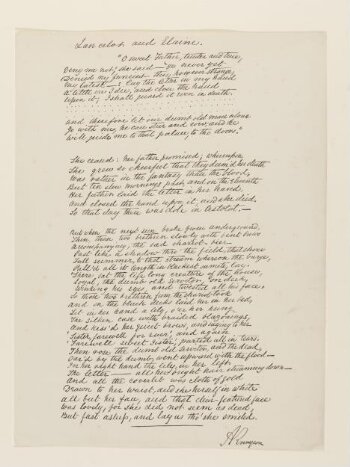 Lancelot and Elaine.
"O sweet father, tender and true,
Deny me not," she said — "ye never yet
Denied my fancies — this, however strange,
My latest: lay the letter in my hand
A little ere I die, and close the hand
Upon it; I shall guard it even in death.
And therefore let our dumb old man alone
Go with me, he can steer and row, and he
Will guide me to that palace, to the doors."
She ceased: her father promised; whereupon
She grew so cheerful that they deem'd her death
Was rather in the fantasy than the blood,
But ten slow mornings past, and on the eleventh
Her father laid the letter in her hand,
And closed the hand upon it, and she died.
So that day there was dole in Astolat.
But when the next sun brake from underground,
Then, those two brethren slowly with bent brows
Accompanying, the sad chariot-bier
Past like a shadow thro' the field, that shone
Full summer, to that stream whereon the barge,
Pall'd all its length in blackest samite, lay.
There sat the lifelong creature of the house,
Loyal, the dumb old servitor, on deck,
Winking his eyes, and twisted all his face.
So those two brethren from the chariot took
And on the black decks laid her in her bed,
Set in her hand a lily, o'er her hung
The silken case with braided blazonings,
And kiss'd her quiet brows, and saying to her
"Sister, farewell for ever," and again
"Farewell, sweet Sister," parted all in tears.
Then rose the dumb old servitor, and the dead,
Oar'd by the dumb, went upward with the flood —
In her right hand the lily, in her left
The letter — all her bright hair streaming down —
And all the coverlid was cloth of gold
Drawn to her waist, and she herself in white
All but her face, and that clear-featured face
Was lovely, for she did not seem as dead,
But fast asleep, and lay as tho' she smiled.
A Tennyson